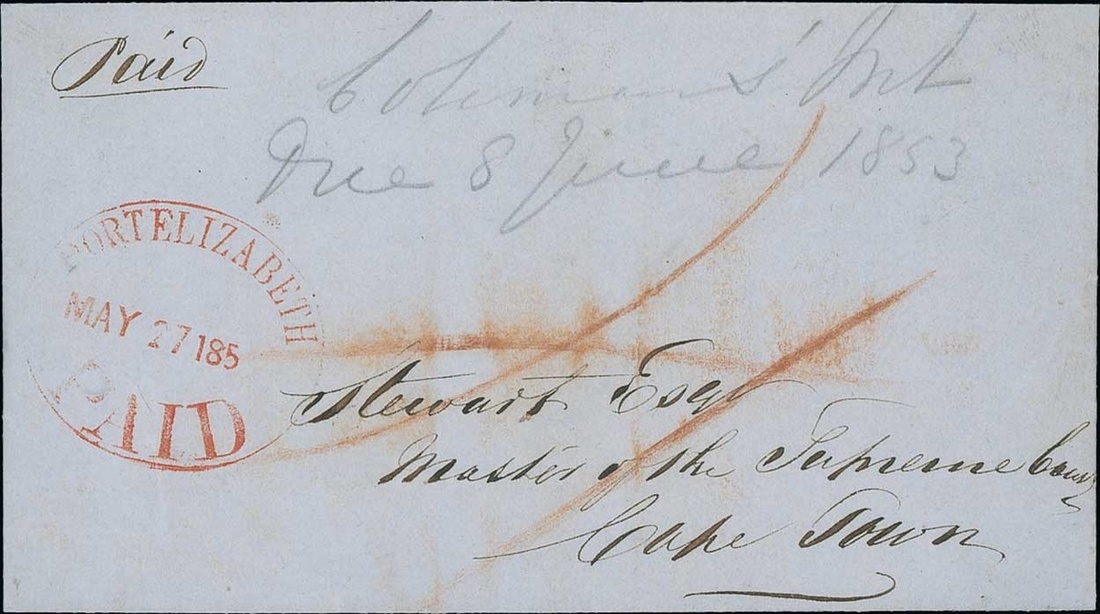 Paid
Coleman's Int
Due 8 June 1853
PORT ELIZABETH
MAY 27 185
PAID
Stewart Esqr
Master of the Supreme Court
Cape Town